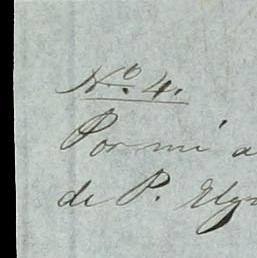 Nº 4.
Por mi a
de P. Elg